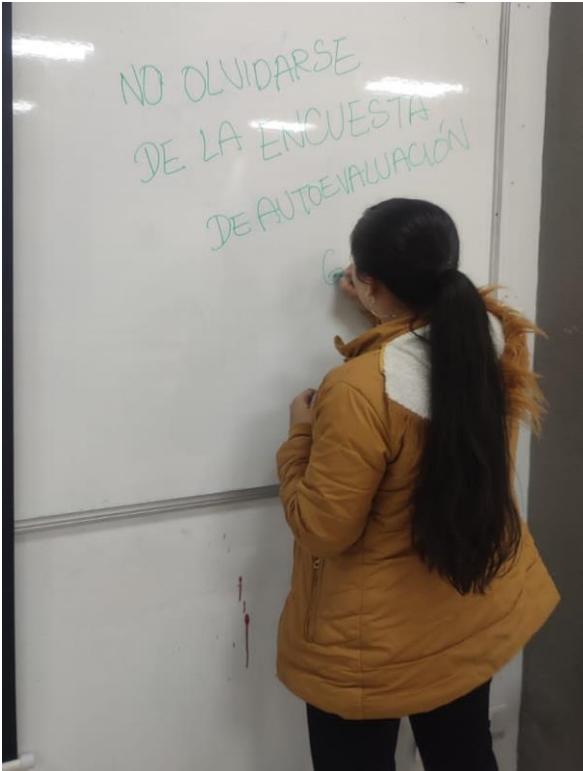 NO OLVIDARSE
DE LA ENCUESTA
DE AUTOEVALUACIÓN
G